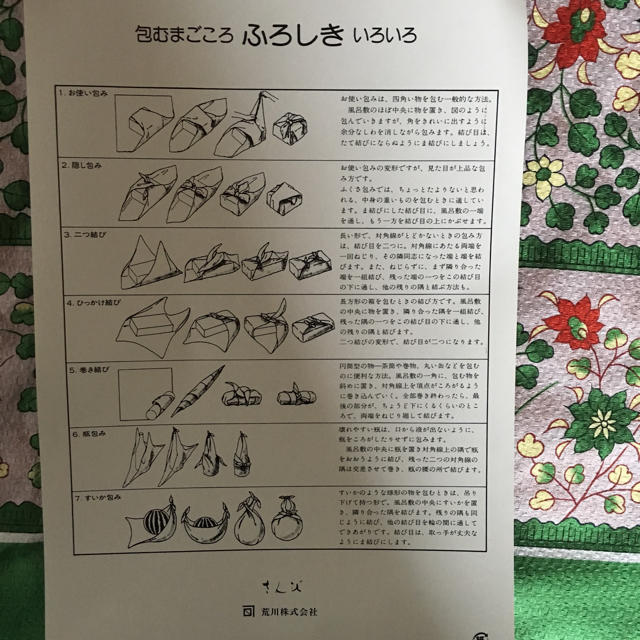 包むまごころ ふろしき いろいろ
1. お使い包み
お使い包みは、四角い物を包む一般的な方法。
風呂敷のほぼ中央に物を置き、図のように
包んでいきますが、角をきれいに出すように
余分なしわを消しながら包みます。結び目は、
たて結びにならぬようにま結びにしましょう。
2. 隠し包み
お使い包みの変形ですが、見た目が上品な包
み方です。
ふくさ包みでは、ちょっとたよりないと思わ
れる、中身の重いものを包むときに適してい
ます。ま結びにした結び目に、風呂敷の一端
を通し、もう一方を結び目の上にかぶせます。
3. 二つ結び
長い形で、対角線がとどかないときの包み方
は、結び目を二つに。対角線にあたる両端を
一回ねじり、その隣同志になった端と端を結
びます。また、ねじらずに、まず隣り合った
端を一組結び、残った端の一つをこの結び目
の下に通し、他の残りの隅と結ぶ方法も。
4. ひっかけ結び
長方形の箱を包むときの結び方です。風呂敷
の中央に物を置き、隣り合った隅を一組結び、
残った隅の一つをこの結び目の下に通し、他
の残りの隅と結びます。
二つ結びの変形で、結び目が二つになります。
5. 巻き結び
円筒型の物―茶筒や巻物、丸い缶などを包む
のに便利な方法。風呂敷の一角に、包む物を
斜めに置き、対角線上を頂点がころがるよう
に巻き込んでいく。全部巻き終わったら、最
後の部分が、ちょうど下にくるくらいのとこ
ろで、両端をねじり廻して結びます。
6. 瓶包み
壊れやすい瓶は、口から液が出ないように、
瓶をころがしたりせずに包みます。
風呂敷の中央に瓶を置き対角線上の隅で瓶
をおおうように結び、残った二つの対角線の
隅は交差させて巻き、瓶の腰の所で結びます。
7. すいか包み
すいかのような球形の物を包むときは、吊り
下げて持つ形で。風呂敷の中央にすいかを置
き、隣り合った隅を結びます。残りの隅も同
じように結び、他の結び目を輪の間に通して
できあがりです。結び目は、取っ手が丈夫な
ようにま結びにします。
さんび
荒川株式会社